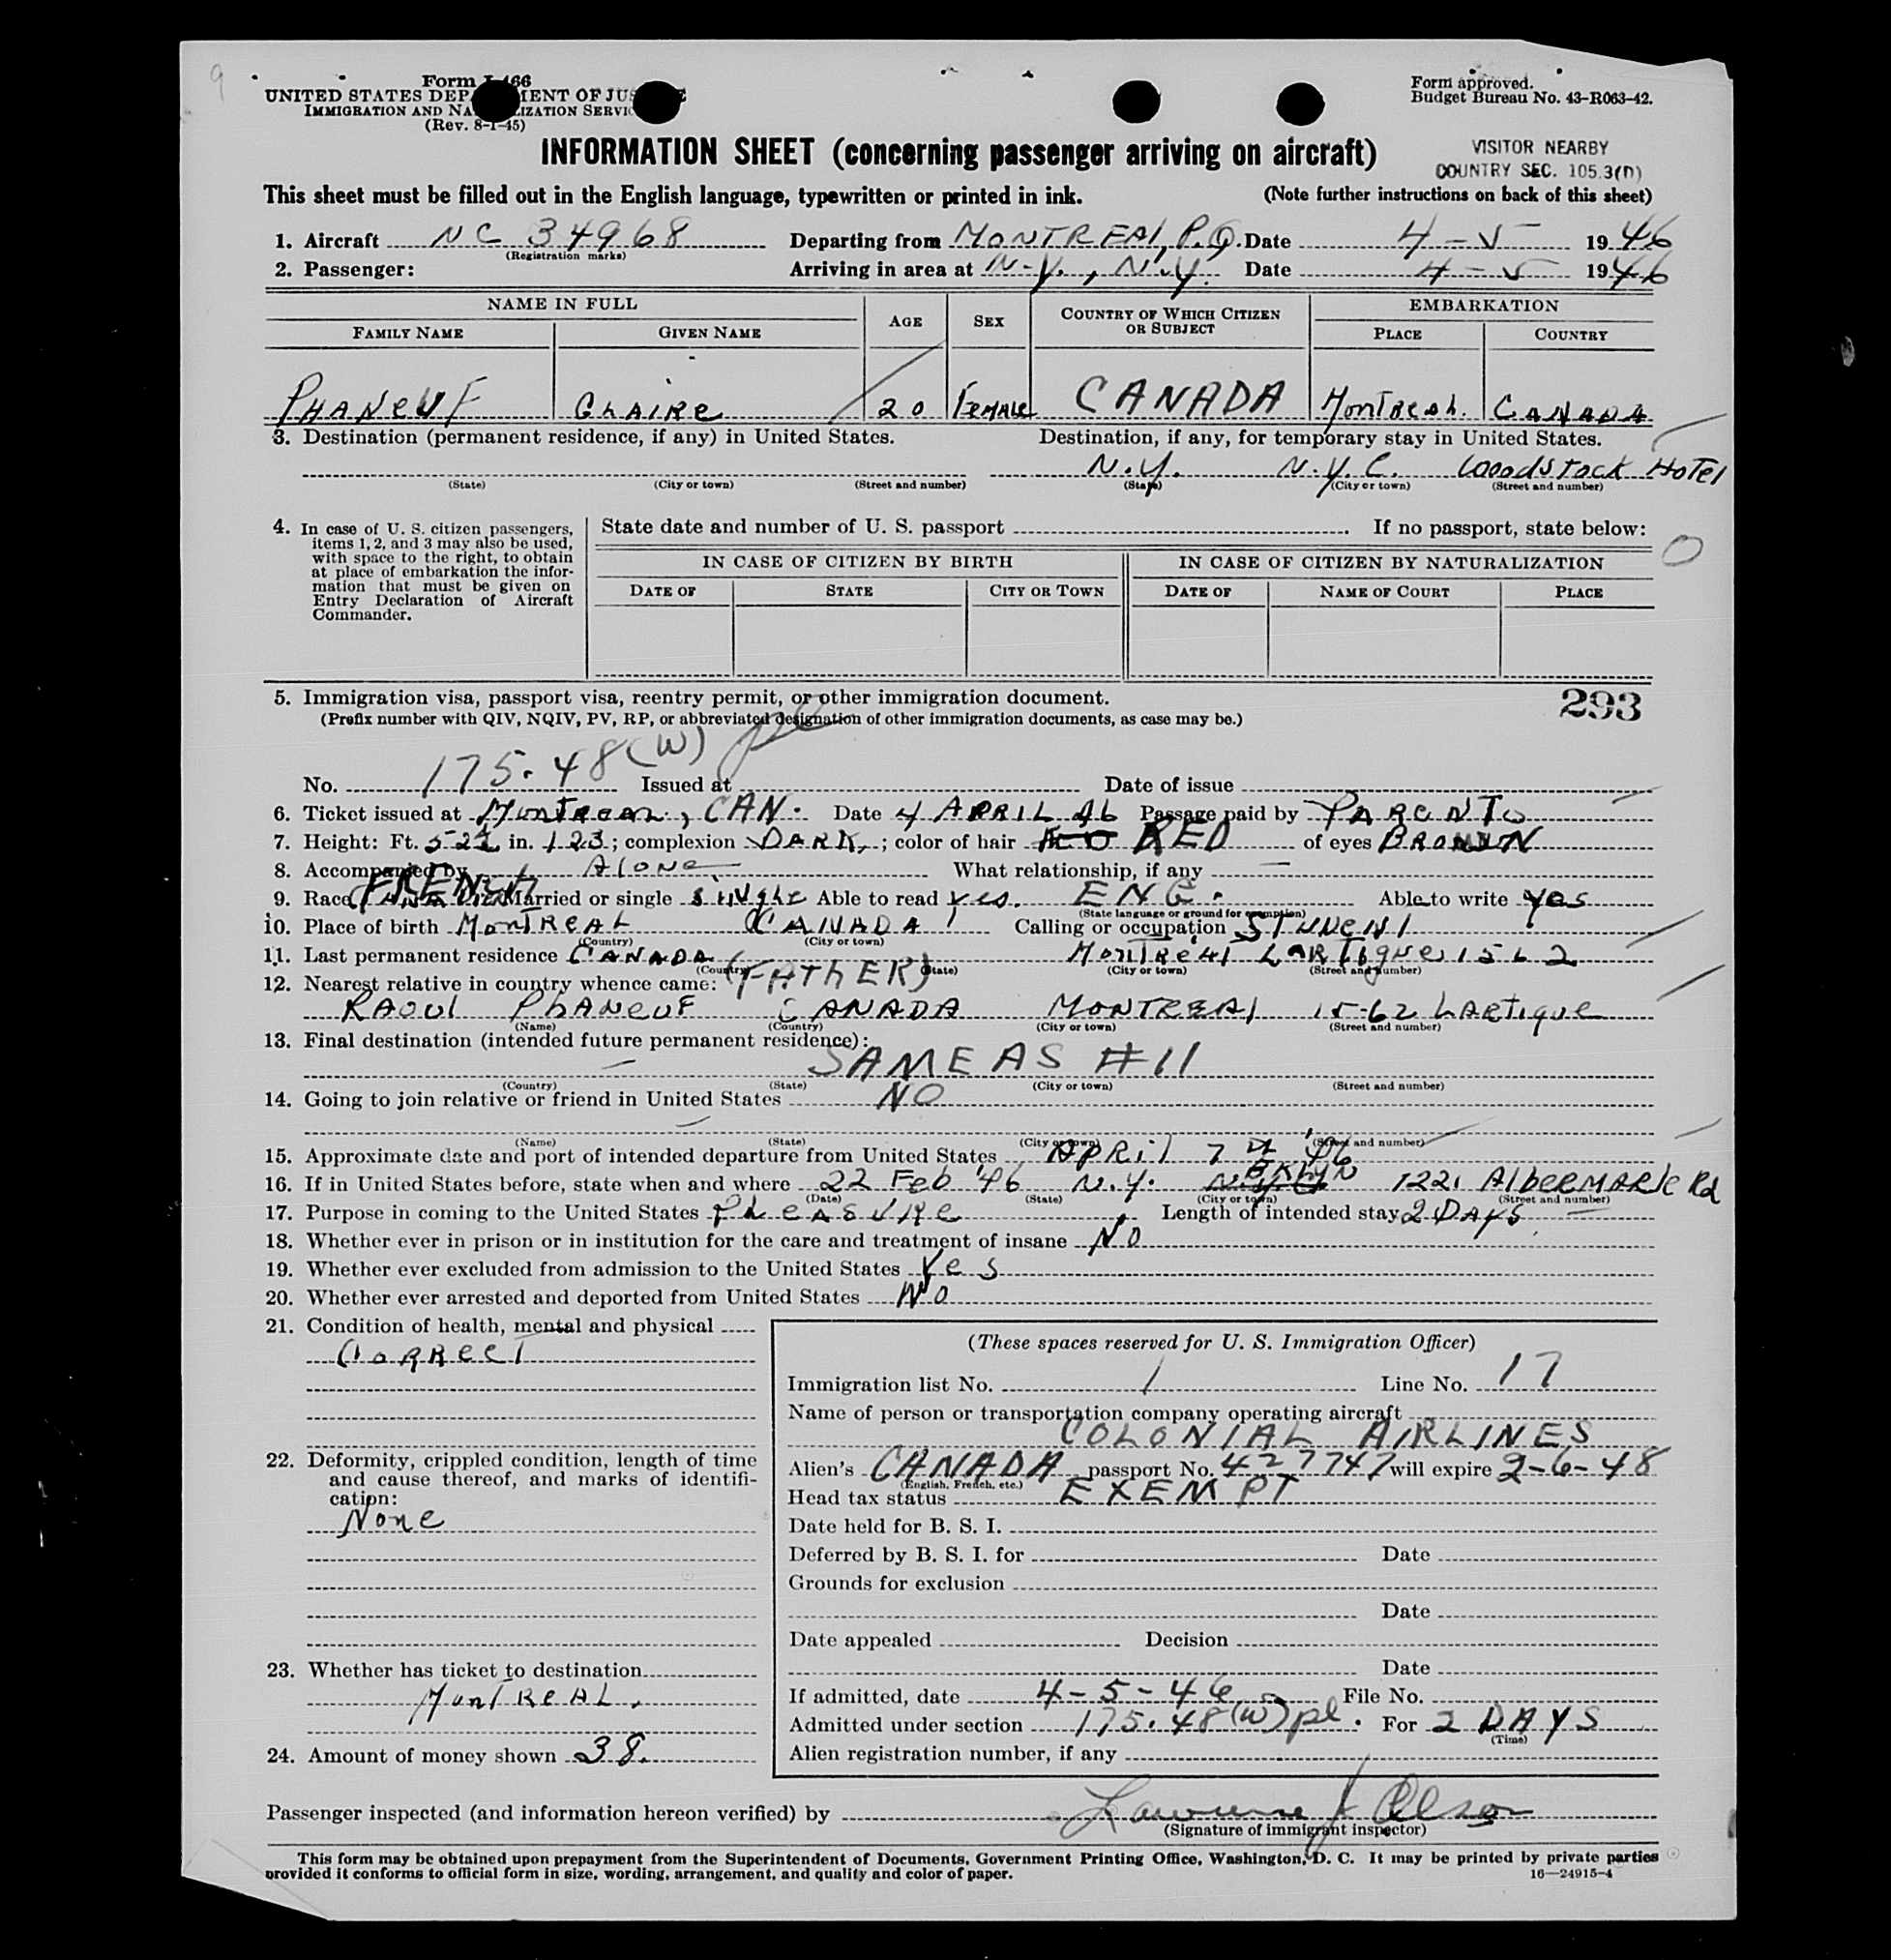 9
Form I-466
UNITED STATES DEPARTMENT OF JUSTICE
IMMIGRATION AND NATURALIZATION SERVICE
(Rev. 8-1-45)
Form approved.
Budget Bureau No. 43-R063-42.
INFORMATION SHEET (concerning passenger arriving on aircraft)
VISITOR NEARBY
COUNTRY SEC. 105.3(D)
This sheet must be filled out in the English language, typewritten or printed in ink. (Note further instructions on back of this sheet)
1. Aircraft NC 34968 Departing from MONTREAl, P.Q. Date 4-5 1946
(Registration marks)
2. Passenger: Arriving in area at N.Y., N.Y. Date 4-5 1946
NAME IN FULL AGE SEX COUNTRY OF WHICH CITIZEN OR SUBJECT EMBARKATION
FAMILY NAME GIVEN NAME PLACE COUNTRY
PHANeUF ClAIRe 20 FeMALe CANADA MonTReal. CANADA
3. Destination (permanent residence, if any) in United States. Destination, if any, for temporary stay in United States.
N.Y. N.Y.C. WoodSTock HoTel
(State) (City or town) (Street and number) (State) (City or town) (Street and number)
4. In case of U. S. citizen passengers, items 1, 2, and 3 may also be used, with space to the right, to obtain at place of embarkation the information that must be given on Entry Declaration of Aircraft Commander.
State date and number of U. S. passport . If no passport, state below:
0
IN CASE OF CITIZEN BY BIRTH IN CASE OF CITIZEN BY NATURALIZATION
DATE OF STATE CITY OR TOWN DATE OF NAME OF COURT PLACE
5. Immigration visa, passport visa, reentry permit, or other immigration document. 293
(Prefix number with QIV, NQIV, PV, RP, or abbreviated designation of other immigration documents, as case may be.)
No. 175.48(W) pl Issued at Date of issue
6. Ticket issued at MonTReaL, CAN. Date 4 APRIL 46 Passage paid by PAReNTs
7. Height: Ft. 5 2½ in. 123; complexion DARK,; color of hair RED of eyes BROWN
8. Accompanied by Alone What relationship, if any —
9. Race FRENCH CANADIAN Married or single SiNgle Able to read Yes. ENG. Able to write Yes
(State language or ground for exemption)
10. Place of birth MonTReAL CANADA Calling or occupation STUDeNT
(Country) (City or town)
11. Last permanent residence CANADA MonTReal LaRTigue 1562
(Country) (State) (City or town) (Street and number)
12. Nearest relative in country whence came: (FATHER)
RAOUl PhANeUF CANADA MONTREAl 1562 LARTigue
(Name) (Country) (City or town) (Street and number)
13. Final destination (intended future permanent residence):
SAME AS #11
(Country) (State) (City or town) (Street and number)
14. Going to join relative or friend in United States NO
(Name) (State) (City or town) (Street and number)
15. Approximate date and port of intended departure from United States APRil 7th '46
16. If in United States before, state when and where 22 Feb '46 N.Y. BKLYN 1221 AlbeRMARle Rd
(Date) (State) (City or town) (Street and number)
17. Purpose in coming to the United States PLeASURe Length of intended stay 2 DAYS
18. Whether ever in prison or in institution for the care and treatment of insane No
19. Whether ever excluded from admission to the United States Yes
20. Whether ever arrested and deported from United States No
21. Condition of health, mental and physical
CoRRecT
22. Deformity, crippled condition, length of time and cause thereof, and marks of identification:
None
23. Whether has ticket to destination
MonTReAL.
24. Amount of money shown 38.
(These spaces reserved for U. S. Immigration Officer)
Immigration list No. 1 Line No. 17
Name of person or transportation company operating aircraft
COLONIAL AIRLINES
Alien's CANADA passport No. 427747 will expire 2-6-48
(English, French, etc.)
Head tax status EXEMPT
Date held for B. S. I.
Deferred by B. S. I. for Date
Grounds for exclusion
Date
Date appealed Decision
Date
If admitted, date 4-5-46 File No.
Admitted under section 175.48(W) pl. For 2 DAYS
(Time)
Alien registration number, if any
Passenger inspected (and information hereon verified) by Lawrence J Olson
(Signature of immigrant inspector)
This form may be obtained upon prepayment from the Superintendent of Documents, Government Printing Office, Washington, D. C. It may be printed by private parties
provided it conforms to official form in size, wording, arrangement, and quality and color of paper. 16—24915-4